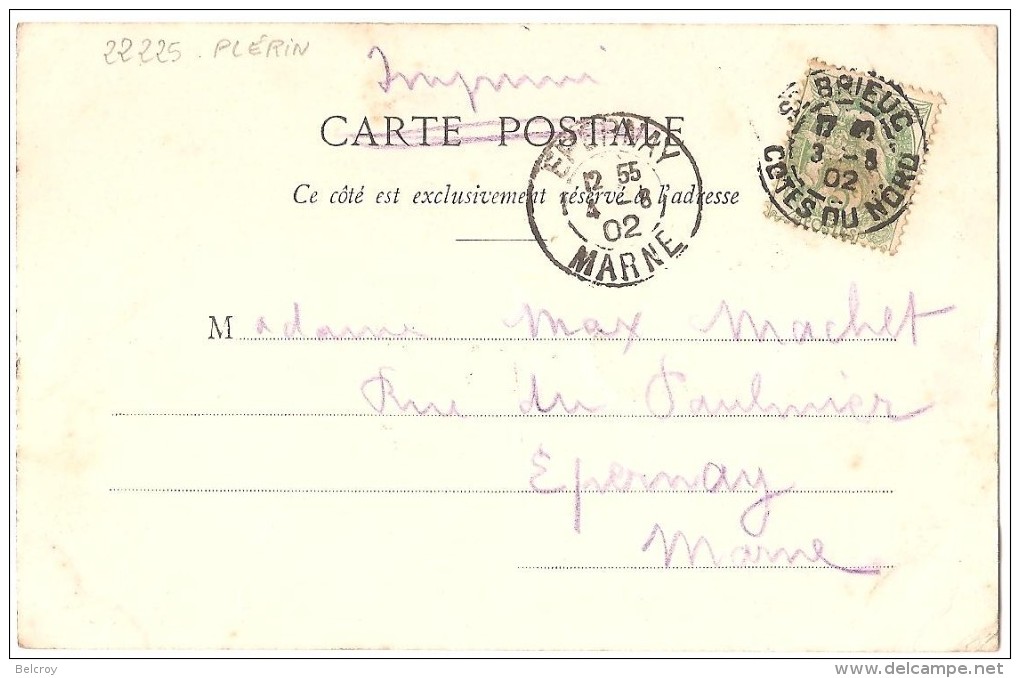 22225. PLÉRIN
Imprimé
CARTE POSTALE
Ce côté est exclusivement réservé à l'adresse
EPERNAY
12 55
4 - 8
02
MARNE
St BRIEUC
17
3 - 8
02
COTES DU NORD
Madame Max Machet
Rue du Paulmier
Epernay
Marne
Belcroy
www.delcampe.net